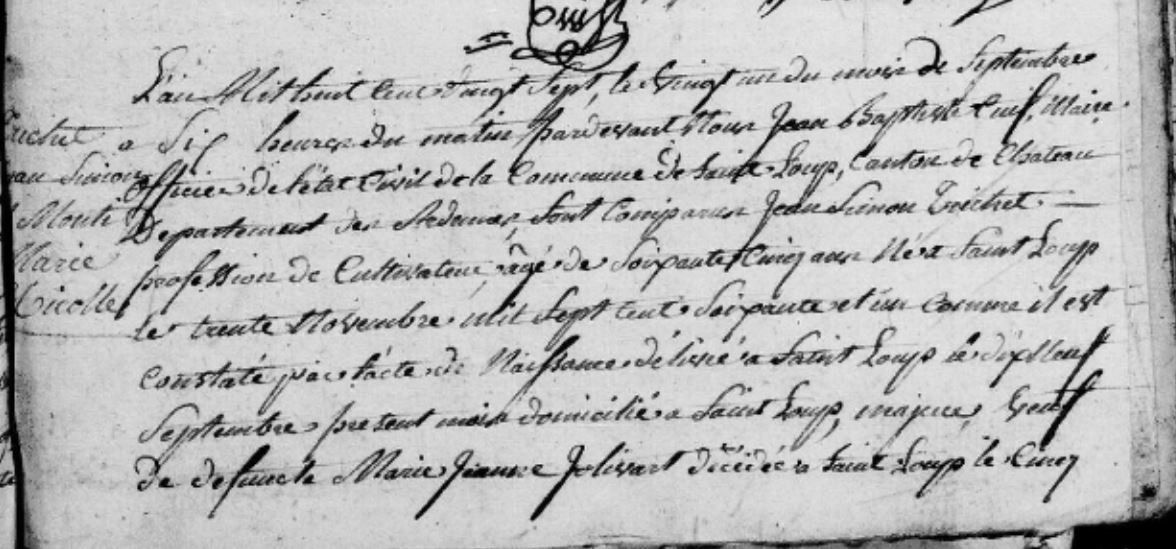 L'an Mil huit Cent Vingt Sept, le Vingt un du mois de Septembre
a Six heures du matin, pardevant Nous Jean Baptiste Cuif, Maire
officier de l'état Civil de la Commune de Saint Loup, Canton de Chateau
Departement des Ardennes, sont Comparus Jean Simon Trichet. —
profession de Cultivateur, agé de Soixante Cinq ans Né a Saint Loup
le trente Novembre mil Sept cent Soixante et un comme il est
constaté par l'acte de Naissance délivré a Saint Loup le dix Neuf
Septembre present mois domicilié a Saint Loup, majeur, Veuf
de defuncte Marie Jeanne Jolivart décédée a Saint Loup le Cinq
Trichet
Jean Simon
Marie
Nicolle